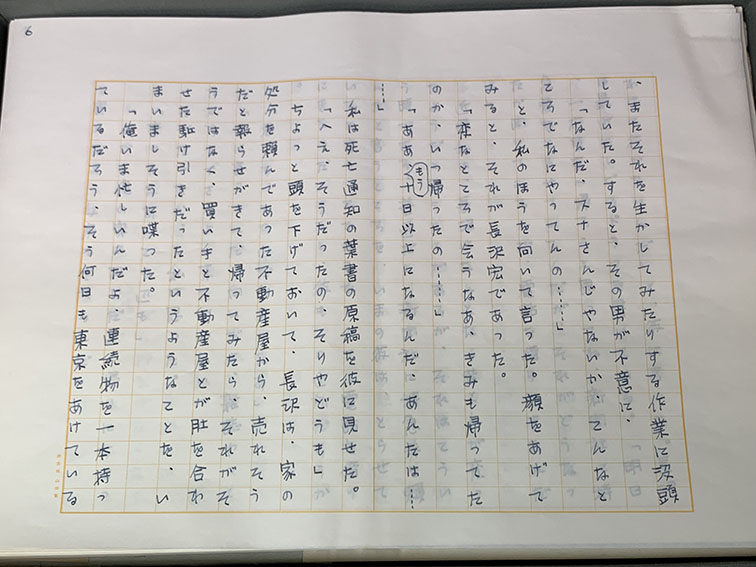 6
、またそれを生かしてみたりする作業に没頭
していた。すると、その男が不意に、
「なんだ、スナさんじゃないか、こんなと
ころでなにやってんの……」
と、私のほうを向いて言った。顔をあげて
みると、それが長沢宏であった。
「変なところで会うなあ、きみも帰ってた
のか、いつ帰ったの……」
「ああ、もう十日以上になるんだ、あんたは…
…」
私は死亡通知の葉書の原稿を彼に見せた。
「へえ、そうだったの、そりゃどうも」
ちょっと頭を下げておいて、長沢は、家の
処分を頼んであった不動産屋から、売れそう
だと報らせがきて、帰ってみたら、それがそ
うではなく、買い手と不動産屋とが肚を合わ
せた駈け引きだったというようなことを、い
まいましそうに喋った。
「俺いま忙しいんだよ、連続物を一本持っ
ているだろう、そう何日も東京をあけている